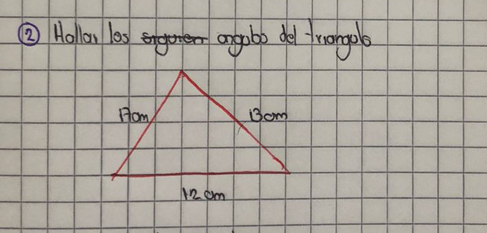 2 Hallar los angulos del triangulo
17cm
13cm
12cm